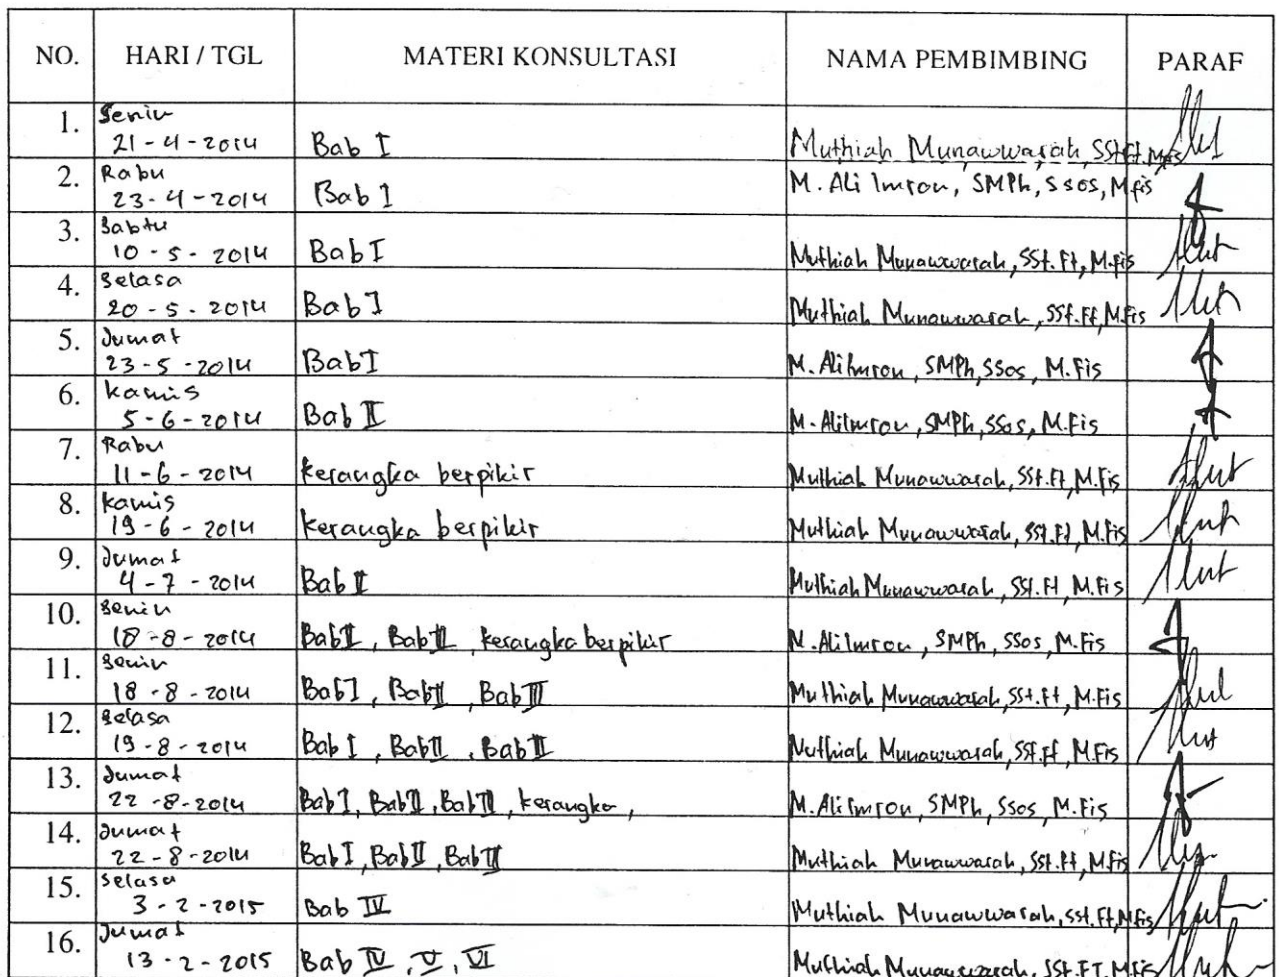 NO. HARI / TGL MATERI KONSULTASI NAMA PEMBIMBING PARAF
1. Senin
21-4-2014 Bab I Muthiah Munawwarah, SSt.Ft, M.Fis
2. Rabu
23-4-2014 Bab I M. Ali Imron, SMPh, Ssos, M.fis
3. Sabtu
10-5-2014 Bab I Muthiah Munawwarah, SSt.Ft, M.Fis
4. Selasa
20-5-2014 Bab I Muthiah Munawwarah, SSt.Ft, M.Fis
5. Jumat
23-5-2014 Bab I M. Ali Imron, SMPh, SSos, M.Fis
6. Kamis
5-6-2014 Bab II M. Ali Imron, SMPh, SSos, M.Fis
7. Rabu
11-6-2014 Kerangka berpikir Muthiah Munawwarah, SSt.Ft, M.Fis
8. Kamis
19-6-2014 Kerangka berpikir Muthiah Munawwarah, SSt.Ft, M.Fis
9. Jumat
4-7-2014 Bab II Muthiah Munawwarah, SSt.Ft, M.Fis
10. Senin
18-8-2014 Bab II, Bab II, Kerangka berpikir M. Ali Imron, SMPh, SSos, M.Fis
11. Senin
18-8-2014 Bab I, Bab II, Bab III Muthiah Munawwarah, SSt.Ft, M.Fis
12. Selasa
19-8-2014 Bab I, Bab II, Bab II Muthiah Munawwarah, SSt.Ft, M.Fis
13. Jumat
22-8-2014 Bab I, Bab II, Bab II, Kerangka, M. Ali Imron, SMPh, SSos, M.Fis
14. Jumat
22-8-2014 Bab I, Bab II, Bab III Muthiah Munawwarah, SSt.Ft, M.Fis
15. Selasa
3-2-2015 Bab IV Muthiah Munawwarah, SSt.Ft, M.Fis
16. Jumat
13-2-2015 Bab IV, V, VI Muthiah Munawwarah, SSt.FT, M.Fis